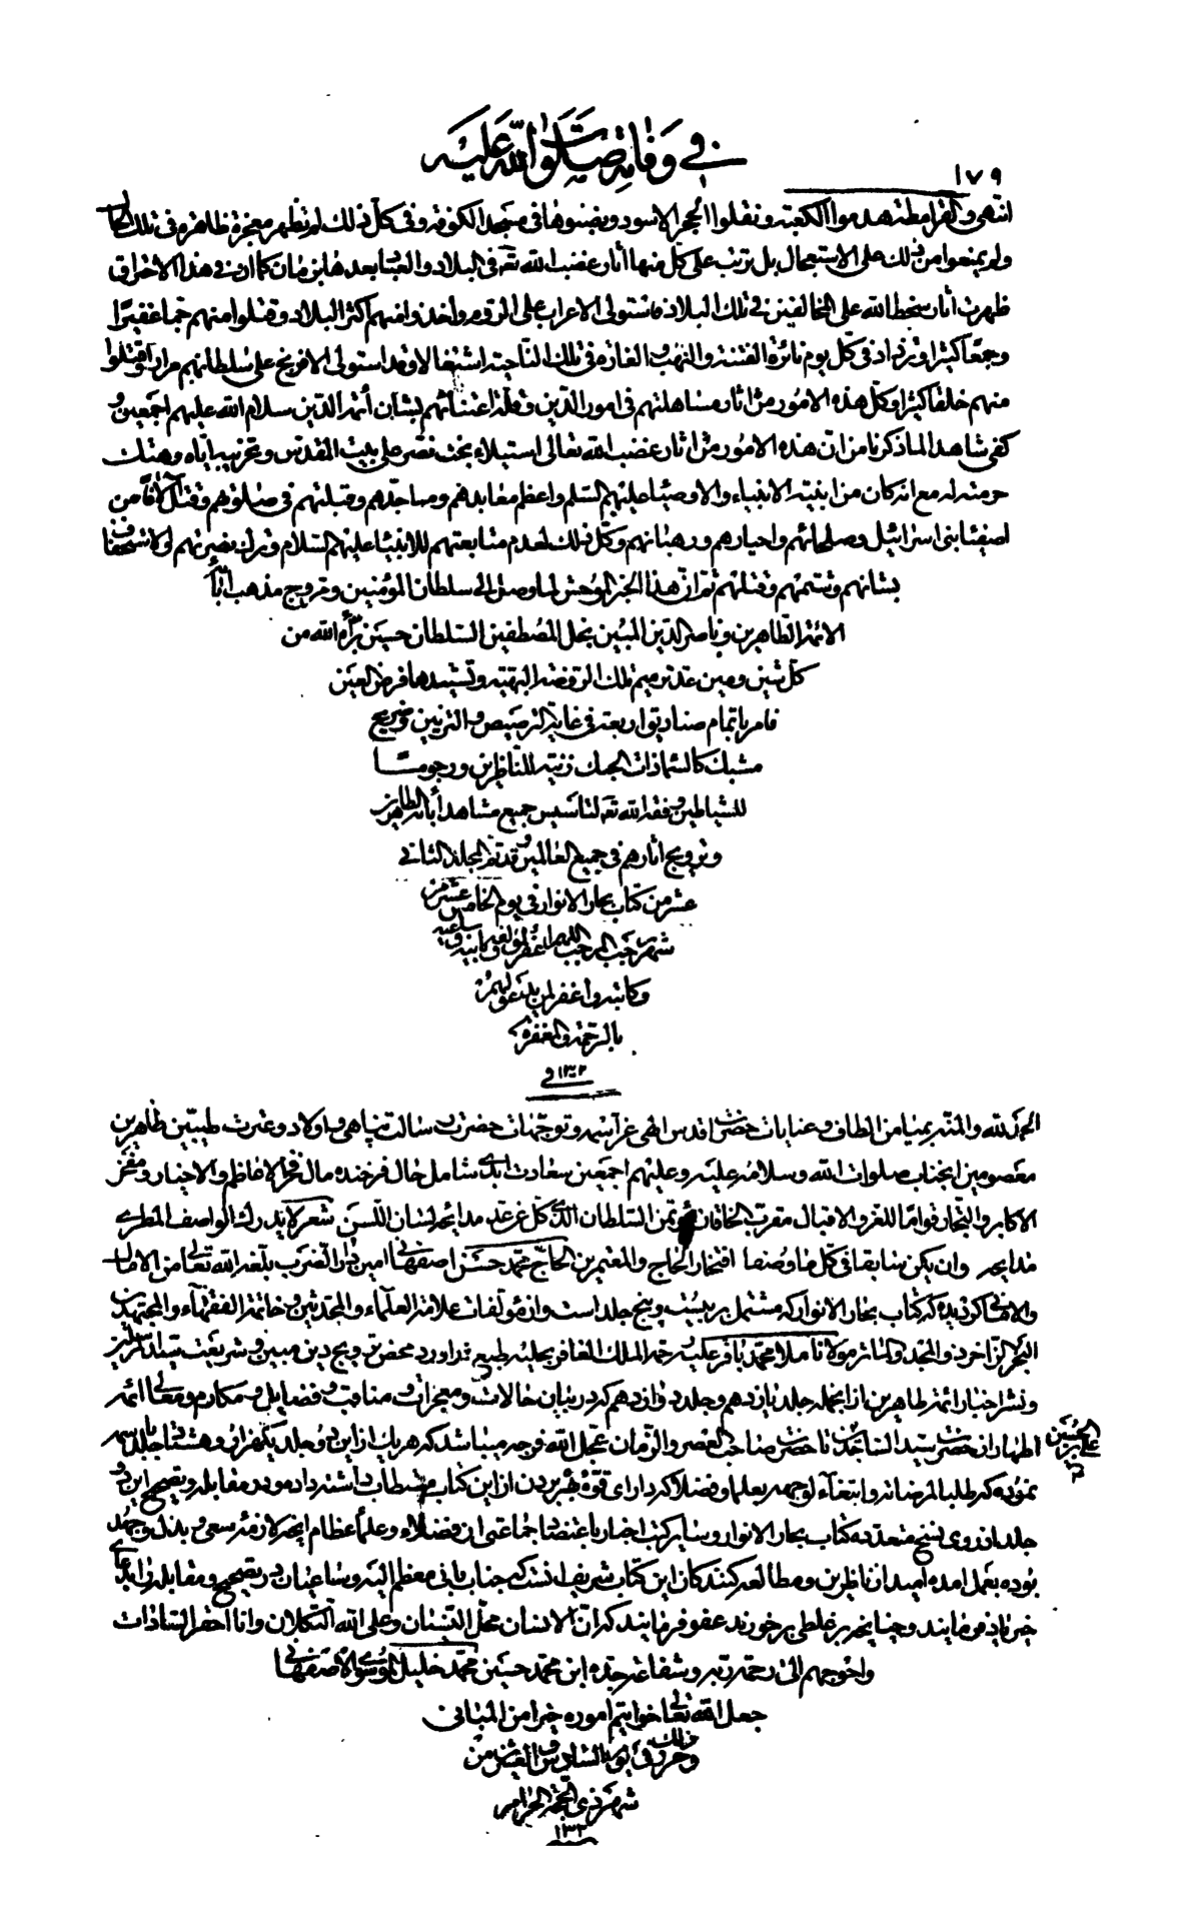 في وفاته صلوات الله عليه
١٧٩
انتهى والقرامطة هدموا الكعبة ونقلوا الحجر الاسود ونصبوها في مسجد الكوفة وفي كل ذلك لم تظهر معجزة ظاهرة في تلك الحال
ولم يمنعوا من ذلك على الاستعجال بل ترتب على كل منها آثار غضب الله تعه في البلاد والعباد بعدها بزمان كما ان في هذا الاحتراق
ظهرت آثار سخط الله على المخالفين في تلك البلاد فاستولى الاعراب على الروم واخذوا منهم اكثر البلاد وقتلوا منهم جما غفيرا
وجمعا كثيرا وتزداد في كل يوم نائرة الفتنة والنهب والغارة في تلك الناحية اشتعالا وقد استولى الافرنج على سلطانهم مرارا وقتلوا
منهم خلقا كثيرا وكل هذه الامور من آثار مساهلتهم في امور الدين وقلة اعتنائهم بشان أئمة الدين سلام الله عليهم اجمعين و
كفى شاهدا لما ذكرنا من ان هذه الامور من آثار غضب الله تعالى استيلاء بخت نصر على بيت المقدس وتخريبه اياه وهتك
حرمته له مع انه كان من ابنية الانبياء والاوصياء عليهم السلم واعظم معابدهم ومساجدهم وقبلتهم في صلوتهم وقتل آلافا من
اصفياء بني اسرائيل وصلحائهم واحبارهم ورهبانهم وكل ذلك لعدم متابعتهم للانبياء عليهم السلام وترك نصرتهم والاستخفاف
بشانهم وشتمهم وقتلهم ثم ان هذا الخبر الموحش لما وصل الى سلطان المؤمنين ومروج مذهب آبائه
الائمة الطاهرين وناصر الدين المبين نجل المصطفين السلطان حسين برأه الله من
كل شين ومين عد ترميم تلك الروضة البهية وتشييدها فرض العين
فامر باتمام صناديق اربعة في غاية الترصيص والتزيين وضريح
مشبك كالسماء ذات الحبك زينة للناظرين ورجوما
للشياطين وفقه الله تعه لتاسيس جميع مشاهد آبائه الطاهرين
وترويج آثارهم في جميع العالمين وقد تم المجلد الثاني
عشر من كتاب بحار الانوار في يوم الخامس عشر من
شهر رجب المرجب اللهم اغفر لمؤلفه وبانيه وساعيه
وكاتبه واغفر لمن يلتمس لهم
بالرحمة والمغفرة
في ١٣٠٢
الحمد لله والمنة بميامن الطاف وعنايات حضرت اقدس الهي عز اسمه وتوجهات حضرت رسالت پناهي واولاد وعترت طيبين طاهرين
معصومين انجناب صلوات الله وسلامه عليه وعليهم اجمعين سعادت ابدي شامل حال فرخنده مال فخر الاعاظم والاخيار ومفخر
الاكابر والتجار قواما للعز والاقبال مقرب الخاقان مؤتمن السلطان الذي كل عن عد مدايحه لسان اللسن شعر لا يدرك الواصف المطري
مدايحه وان يكن سابقا في كل ما وصفا افتخار الحاج والمعتمرين الحاج محمد حسن اصفهاني امين دار الضرب بلغه الله تعالى من الامال
والاماني گرديده كه كتاب بحار الانوار كه مشتمل بر بيست وپنج جلد است واز مؤلفات علامة العلماء والمحدثين وخاتمة الفقهاء والمجتهدين
البحر الزاخر ذو المجد والمآثر مولانا ملا محمد باقر عليه رحمة الملك الغافر بحليه طبع در آورد محض ترويج دين مبين وشريعت سيد المرسلين
ونشر اخبار ائمة طاهرين از انجمله جلد يازدهم وجلد دوازدهم كه در بيان حالات ومعجزات ومناقب وفضايل ومكارم ومعالي ائمه
اطهار از حضرت سيد الساجدين تا حضرت صاحب العصر والزمان عجل الله فرجه ميباشد كه هر يك از اين دو جلد يكهزار وهشتاد جلد باسمه
علي بن الحسين ع
نموده كه طلبا لمرضاته وابتغاء لوجهه بعلما وفضلا كه داراي قوه خبر بردن از اين كتاب مستطاب داشته داده ودر مقابله وتصحيح اين دو
جلد از روي نسخ متعدده كتاب بحار الانوار وساير كتب اخبار باعتضاد جماعتي از فضلاء وعلماء عظام انچه لازمه سعي وبذل وجهد
بوده بعمل امده اميد از ناظرين ومطالعه كنندكان اين كتاب شريف انست كه جناب باني معظم اليه وساعيان در تصحيح ومقابله را بدعاي
خير ياد فرمايند وچنانچه بر غلطي برخورند عفو فرمايند كه ان الانسان محل النسيان وعلى الله التكلان وانا احقر السادات
واحوجهم الى رحمة ربه وشفاعة جده ابن محمد حسين محمد خليل الموسوي الاصفهاني
جعل الله تعالى خواتيم اموره خيرا من المباني
وحرر ذلك في يوم السادس والعشرين من
شهر ذي الحجة الحرام
١٣٠٢